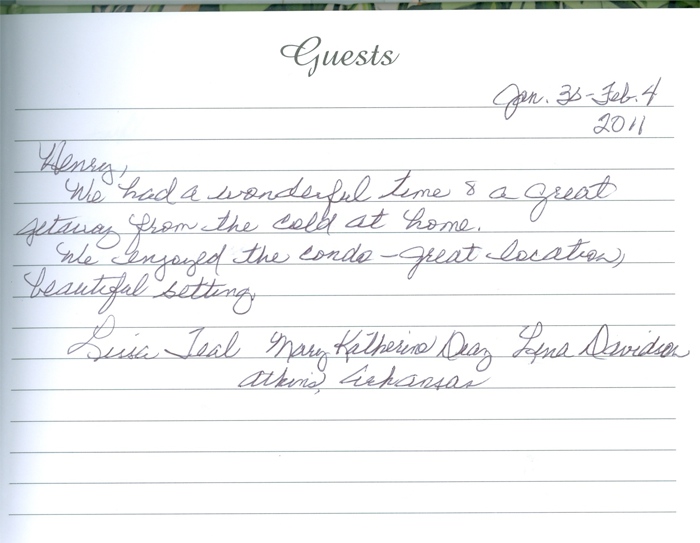 Guests
Jan. 30-Feb. 4
2011
Henry,
We had a wonderful time & a great
getaway from the cold at home.
We enjoyed the condo - great location,
beautiful setting.
Teal Mary Katherine Diaz Lena Davidson
Atkins, Arkansas